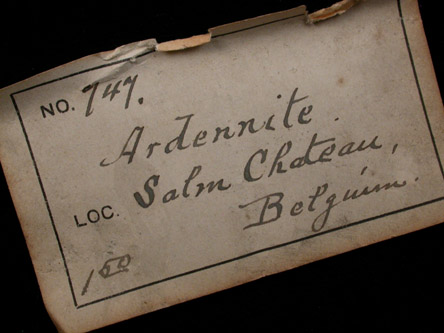 NO. 747.
Ardennite.
LOC. Salm Chateau,
Belguim.
1 50